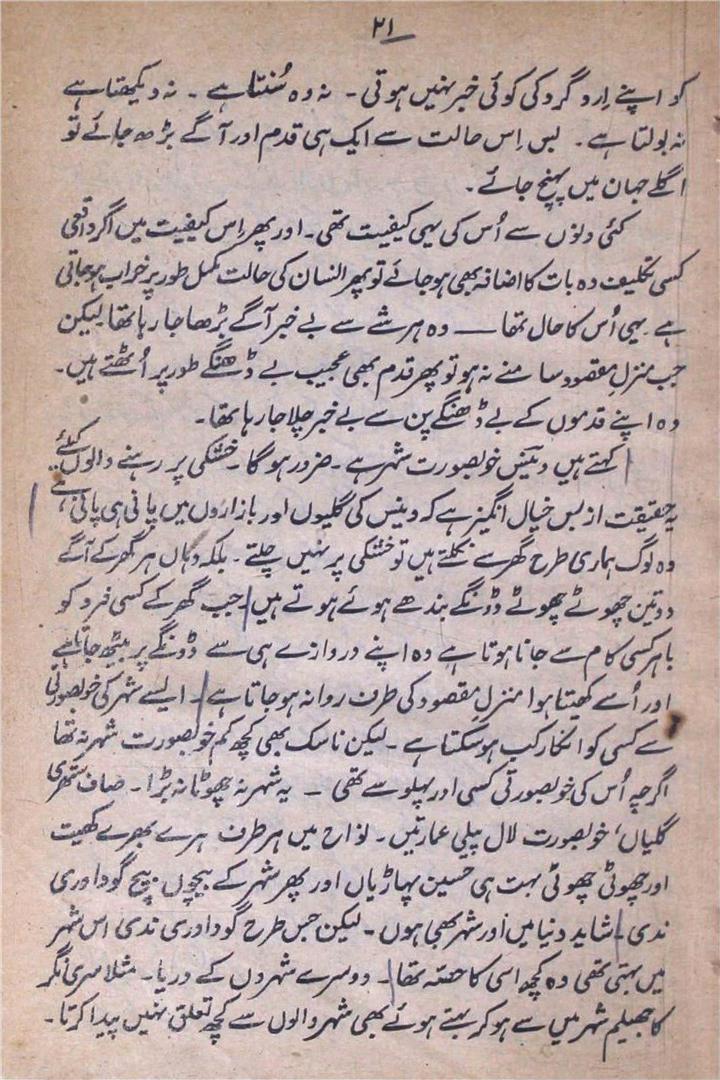 ۲۱
کو اپنے اِرد گرد کی کوئی خبر نہیں ہوتی ۔ نہ وہ سُنتا ہے ۔ نہ دیکھتا ہے
نہ بولتا ہے ۔ بس اِس حالت سے ایک ہی قدم اور آگے بڑھ جائے تو
اگلے جہان میں پہنچ جائے ۔
کئی دنوں سے اُس کی یہی کیفیت تھی ۔ اور پھر اِس کیفیت میں اگر واقعی
کسی تکلیف دہ بات کا اضافہ بھی ہو جائے تو پھر انسان کی حالت مکمل طور پر خراب ہو جاتی
ہے ۔ یہی اُس کا حال تھا ــــ وہ ہر شے سے بے خبر آگے بڑھا جا رہا تھا ۔ لیکن
جب منزلِ مقصود سامنے نہ ہو تو پھر قدم بھی عجیب بے ڈھنگے طور پر اُٹھتے ہیں ۔
وہ اپنے قدموں کے بے ڈھنگے پن سے بے خبر چلا جا رہا تھا ۔
کہتے ہیں وینس خوبصورت شہر ہے ۔ ضرور ہو گا ۔ خشکی پر رہنے والوں کیلئے
یہ حقیقت ازبس خیال انگیز ہے کہ وینس کی گلیوں اور بازاروں میں پانی ہی پانی ہے
وہ لوگ ہماری طرح گھر سے نکلتے ہیں تو خشکی پر نہیں چلتے ۔ بلکہ وہاں ہر گھر کے آگے
دو تین چھوٹے چھوٹے ڈونگے بندھے ہوئے ہوتے ہیں ۔ جب گھر کے کسی فرد کو
باہر کسی کام سے جانا ہوتا ہے وہ اپنے دروازے ہی سے ڈونگے پر بیٹھ جاتا ہے
اور اُسے کھیتا ہوا منزلِ مقصود کی طرف روانہ ہو جاتا ہے ۔ ایسے شہر کی خوبصورتی
سے کسی کو انکار کب ہو سکتا ہے ۔ لیکن ناسک بھی کچھ کم خوبصورت شہر نہ تھا
اگرچہ اُس کی خوبصورتی کسی اور پہلو سے تھی ۔ یہ شہر نہ چھوٹا نہ بڑا ۔ صاف ستھری
گلیاں، خوبصورت لال پیلی عمارتیں ۔ نواح میں ہر طرف ہرے بھرے کھیت
اور چھوٹی چھوٹی بہت ہی حسین پہاڑیاں اور پھر شہر کے بیچوں بیچ گوداوری
ندی ۔ شاید دنیا میں اور شہر بھی ہوں ۔ لیکن جس طرح گوداوری ندی اس شہر
میں بہتی تھی وہ کچھ اسی کا حصّہ تھا ۔ دوسرے شہروں کے دریا ۔ مثلاً سری نگر
کا جھیلم شہر میں سے ہو کر بہتے ہوئے بھی شہر والوں سے کچھ تعلق نہیں پیدا کرتا ۔